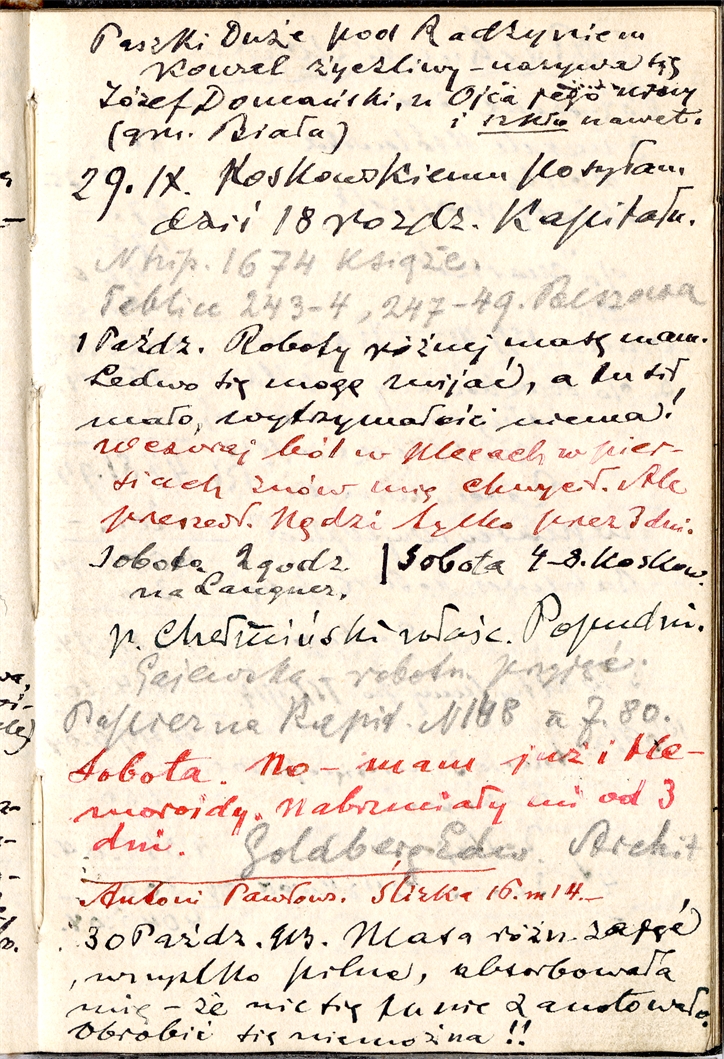 Paszki Duże pod Radzyniem
Kowal życzliwy – nazywa się
Józef Domański, u Ojca jego
i szkło nawet.
(gm. Biała)
29. IX. Koskowskiemu posyłam
dziś 18 rozdz. Kapitału.
N hip. 1674 książe.
Tablice 243-4, 247-49.
1 Paźdz. Roboty różnej masę mam.
Ledwo się mogę zwijać, a tu sił
mało, wytrzymałości niema!
Wczoraj ból w plecach w pier-
siach znów mię chwycił. Ale
przeszedł. Nędzi tylko przez 3 dni.
Sobota 2 godz. | Sobota 4-8. Koskow.
na Langner.
p. Chełmiński właśc. Popudn.
Gajewska – robotn. przyjąć.
Papier na Kapit. N 148 a 7.80.
Sobota. No – mam już i He-
moroidy. Nabrzmiały mi od 3
dni. Goldberg Edw. Archit
Antoni Pawłow. Ślizka 16. m 14.–
30 Paźdz. 913. Masa różn. zajęć
, wszystko pilne, absorbowała
mię – że nic się tu nie zanotowało.
Obrobić się niemożna!!